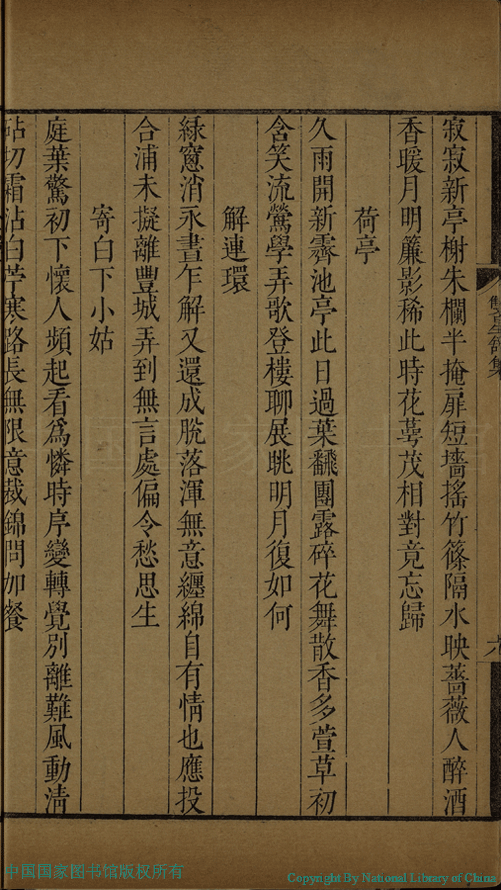 寂寂新亭榭朱欄半掩扉短墻搖竹篠隔水映薔薇人醉酒
香暖月明簾影稀此時花萼茂相對竟忘歸
荷亭
久雨開新霽池亭此日過葉飜團露碎花舞散香多萱草初
含笑流鶯學弄歌登樓聊展眺明月復如何
解連環
綠窻消永晝乍解又還成脫落渾無意纏綿自有情也應投
合浦未擬離豐城弄到無言處偏令愁思生
寄白下小姑
庭葉驚初下懷人頻起看爲憐時序變轉覺別離難風動淸
砧切霜沾白苧寒路長無限意裁錦問加餐
中国国家图书馆版权所有
Copyright By National Library of China